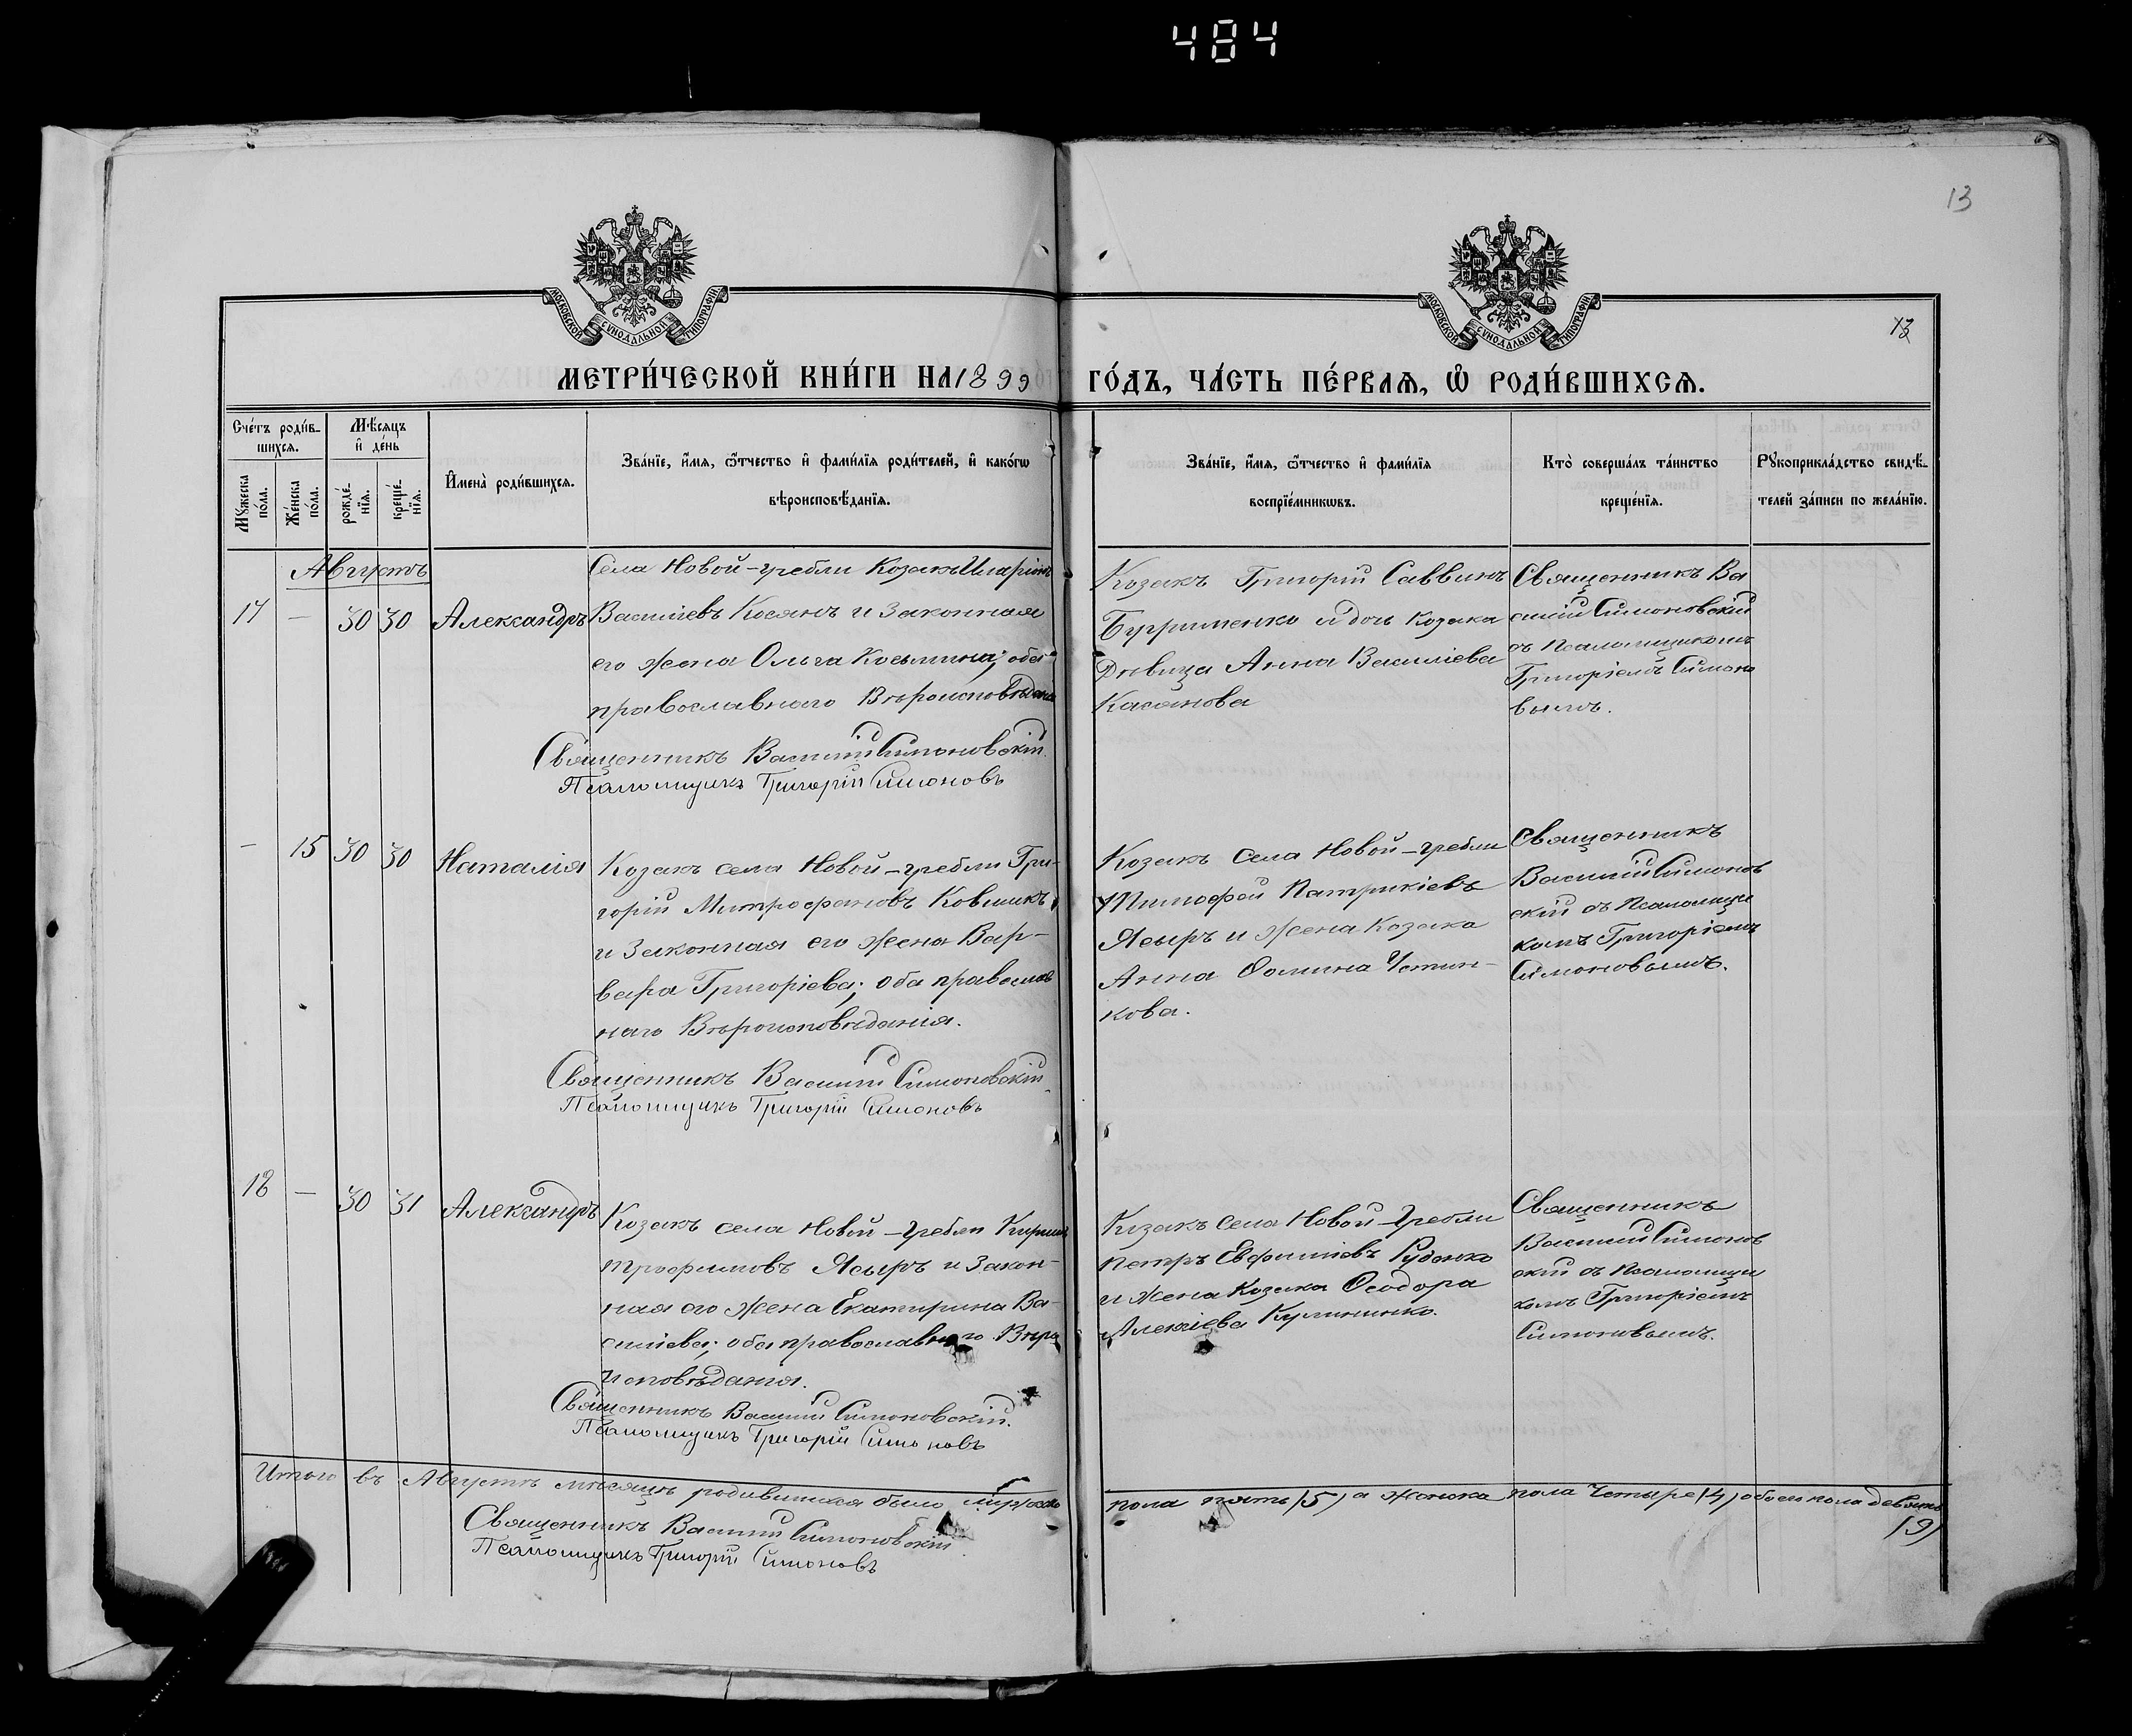 484
13
МОСКОВСКОЙ СУНОДАЛЬНОЙ ТИПОГРАФІИ
МОСКОВСКОЙ СУНОДАЛЬНОЙ ТИПОГРАФІИ
13
МЕТРИ́ЧЕСКОЙ КНИ́ГИ НА 1899 ГО́ДЪ, ЧА́СТЬ ПЕ́РВАЯ, Ѽ РОДИ́ВШИХСЯ.
Сче́тъ роди́в-
шихся.
Мѣ́сяцъ
и҆ де́нь
Мꙋ́жеска
по́ла.
Же́нска
по́ла.
рожде́-
нїя.
креще́-
нїя.
И҆мена̀ роди́вшихся.
Зва́нїе, и҆́мя, ѻ҆́тчество и҆ фами́лїя роди́телей, и҆ како́гѡ
вѣроисповѣ́данїя.
Зва́нїе, и҆́мя, ѻ҆́тчество и҆ фами́лїя
воспрїе́мникѡвъ.
Кто̀ соверша́лъ та́инство
креще́нїя.
Рꙋкоприкла́дство свидѣ́-
телей за́писи по жела́нїю.
Августъ
17 — 30 30 Александръ
Села Новой-гребли Козакъ Иларіонъ
Василіевъ Косянъ и законная
его жена Ольга Косьмина; оба
православнаго Вѣроисповѣданія
Священникъ Василій Симоновскій.
Псаломщикъ Григорій Симоновъ
Козакъ Григорій Саввинъ
и дочь Козака
Дѣвица Анна Василіева
Касянова
Священникъ Ва
силій Симоновскій
съ Псаломщикомъ
Григоріемъ Симоно
вымъ.
— 15 30 30 Наталія
Козакъ села Новой-гребли Гри-
горій Митрофановъ Ковшикъ
и Законная его жена Вар-
вара Григоріева; оба православ
наго Вѣроисповѣданія.
Священникъ Василій Симоновскій
Псаломщикъ Григорій Симоновъ
Козакъ Села Новой-гребли
Тимофей Патрикіевъ
Ясыръ и жена Козака
Анна Фомина Устин-
кова.
Священникъ
Василій Симонов
скій съ Псаломщи
комъ Григоріемъ
Симоновымъ.
18 — 30 31 Александръ
Козакъ села Новой-гребли Кирилъ
Трофимовъ Ясыръ и Закон-
ная его жена Екатирина Ва-
силіева; оба православнаго Вѣро
исповѣданія.
Священникъ Василій Симоновскій.
Псаломщикъ Григорій Симоновъ
Козакъ Села Новой-Гребли
Петръ Евфиміевъ Руденко
и жена Козака Феодора
Алексіева
Священникъ
Василій Симонов
скій съ Псаломщи
комъ Григоріемъ
Симоновымъ.
Итого въ Августѣ мѣсяцѣ родившихся было мужеска пола пять (5) а женска пола Четыре (4) обоего пола девять
(9)
Священникъ Василій Симоновскій
Псаломщикъ Григорій Симоновъ